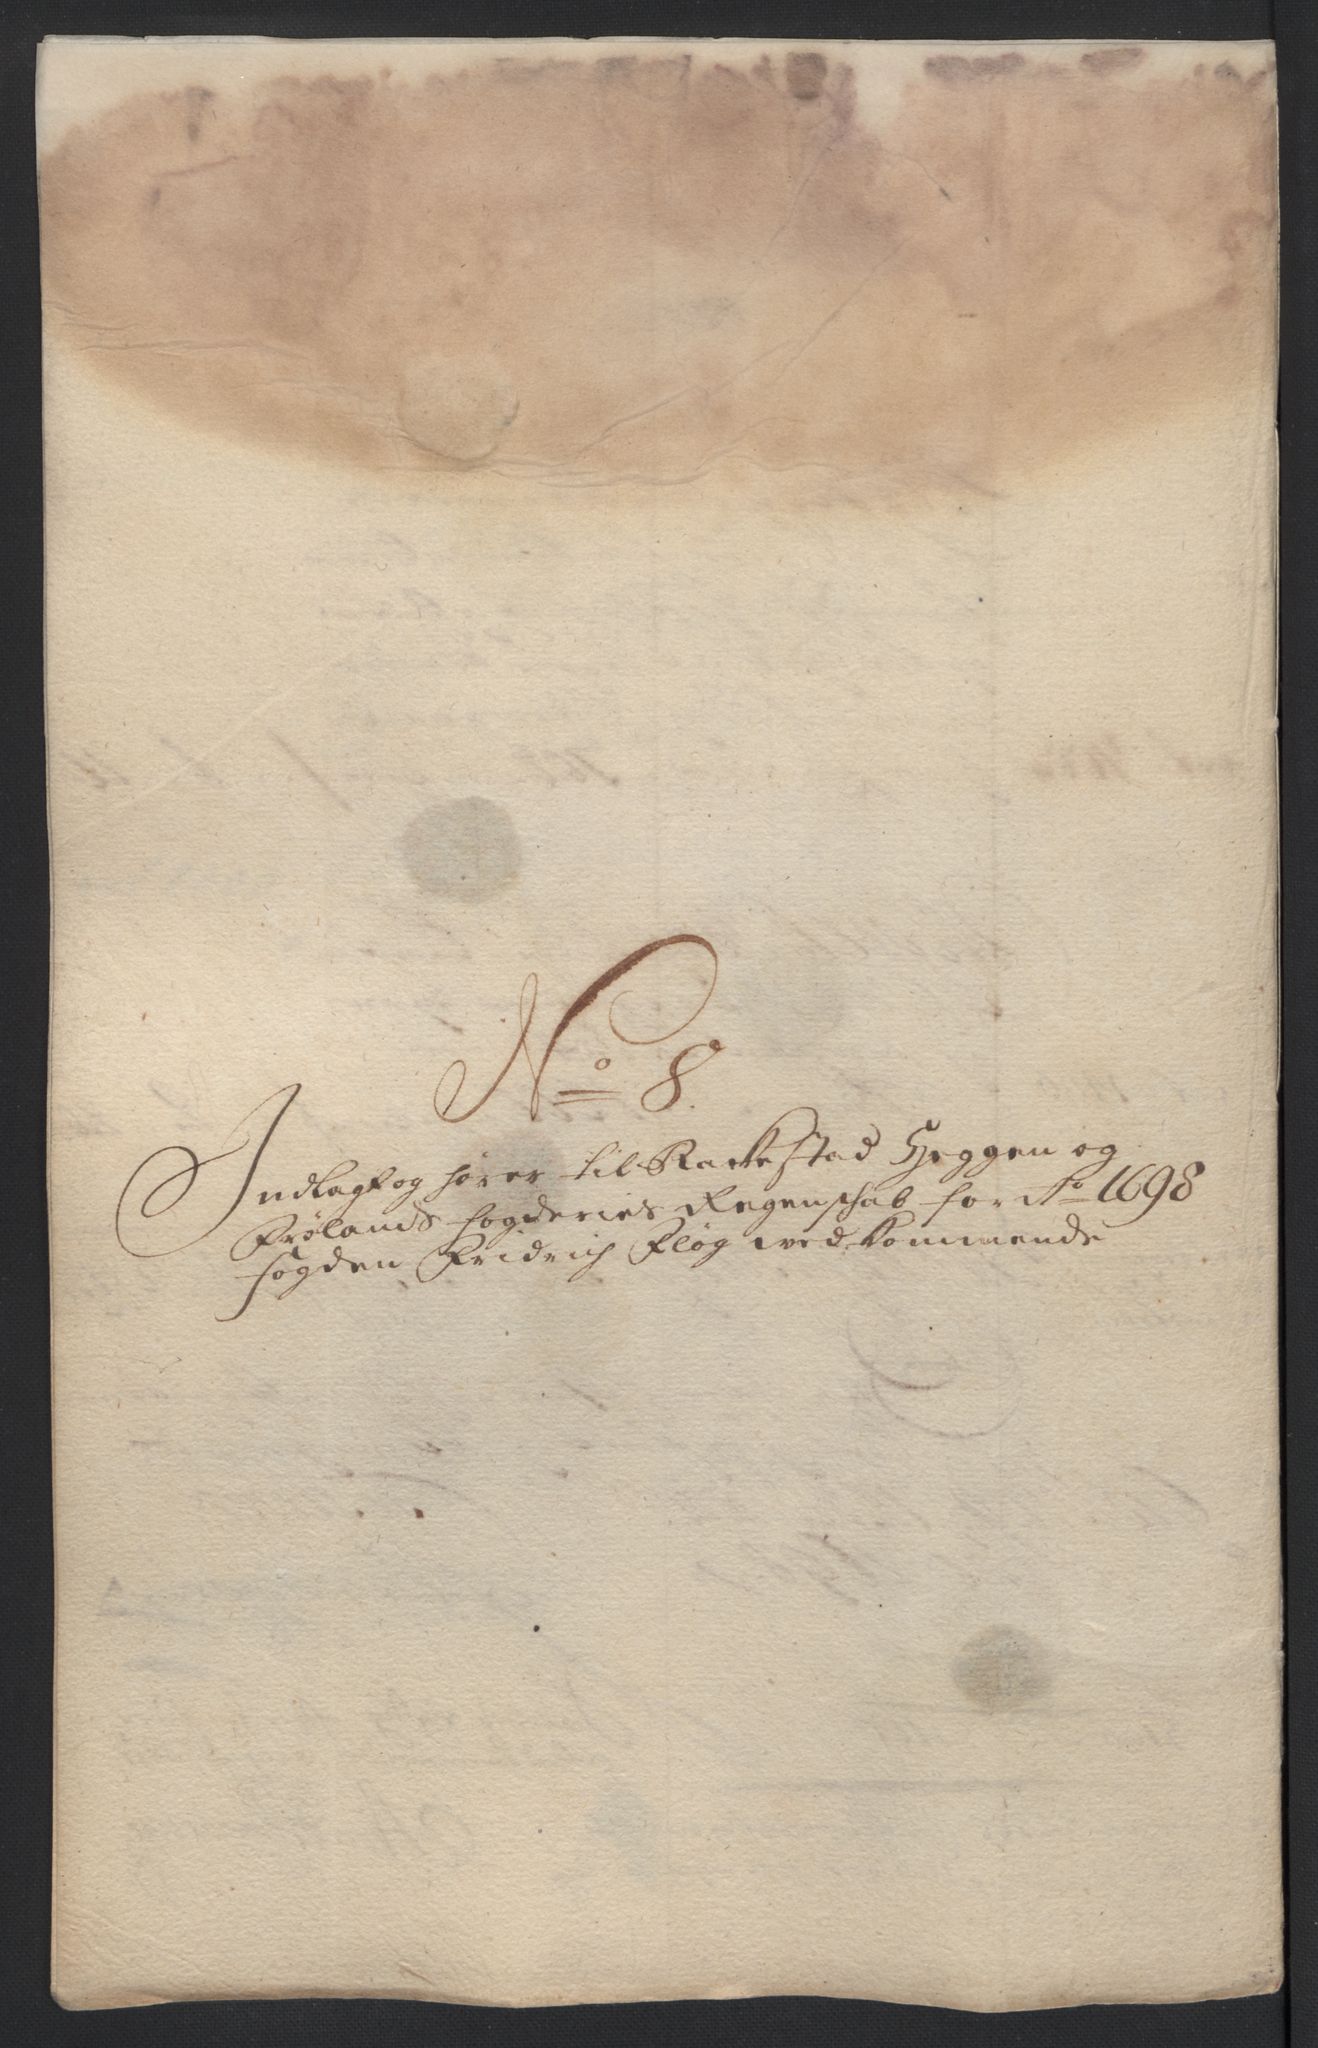 No 8.
Indlagt og hører til Rackestad Heggen og
Frølands fogderies Regenschab for Ao 1698
fogden Fridrich Fløg vedkommende